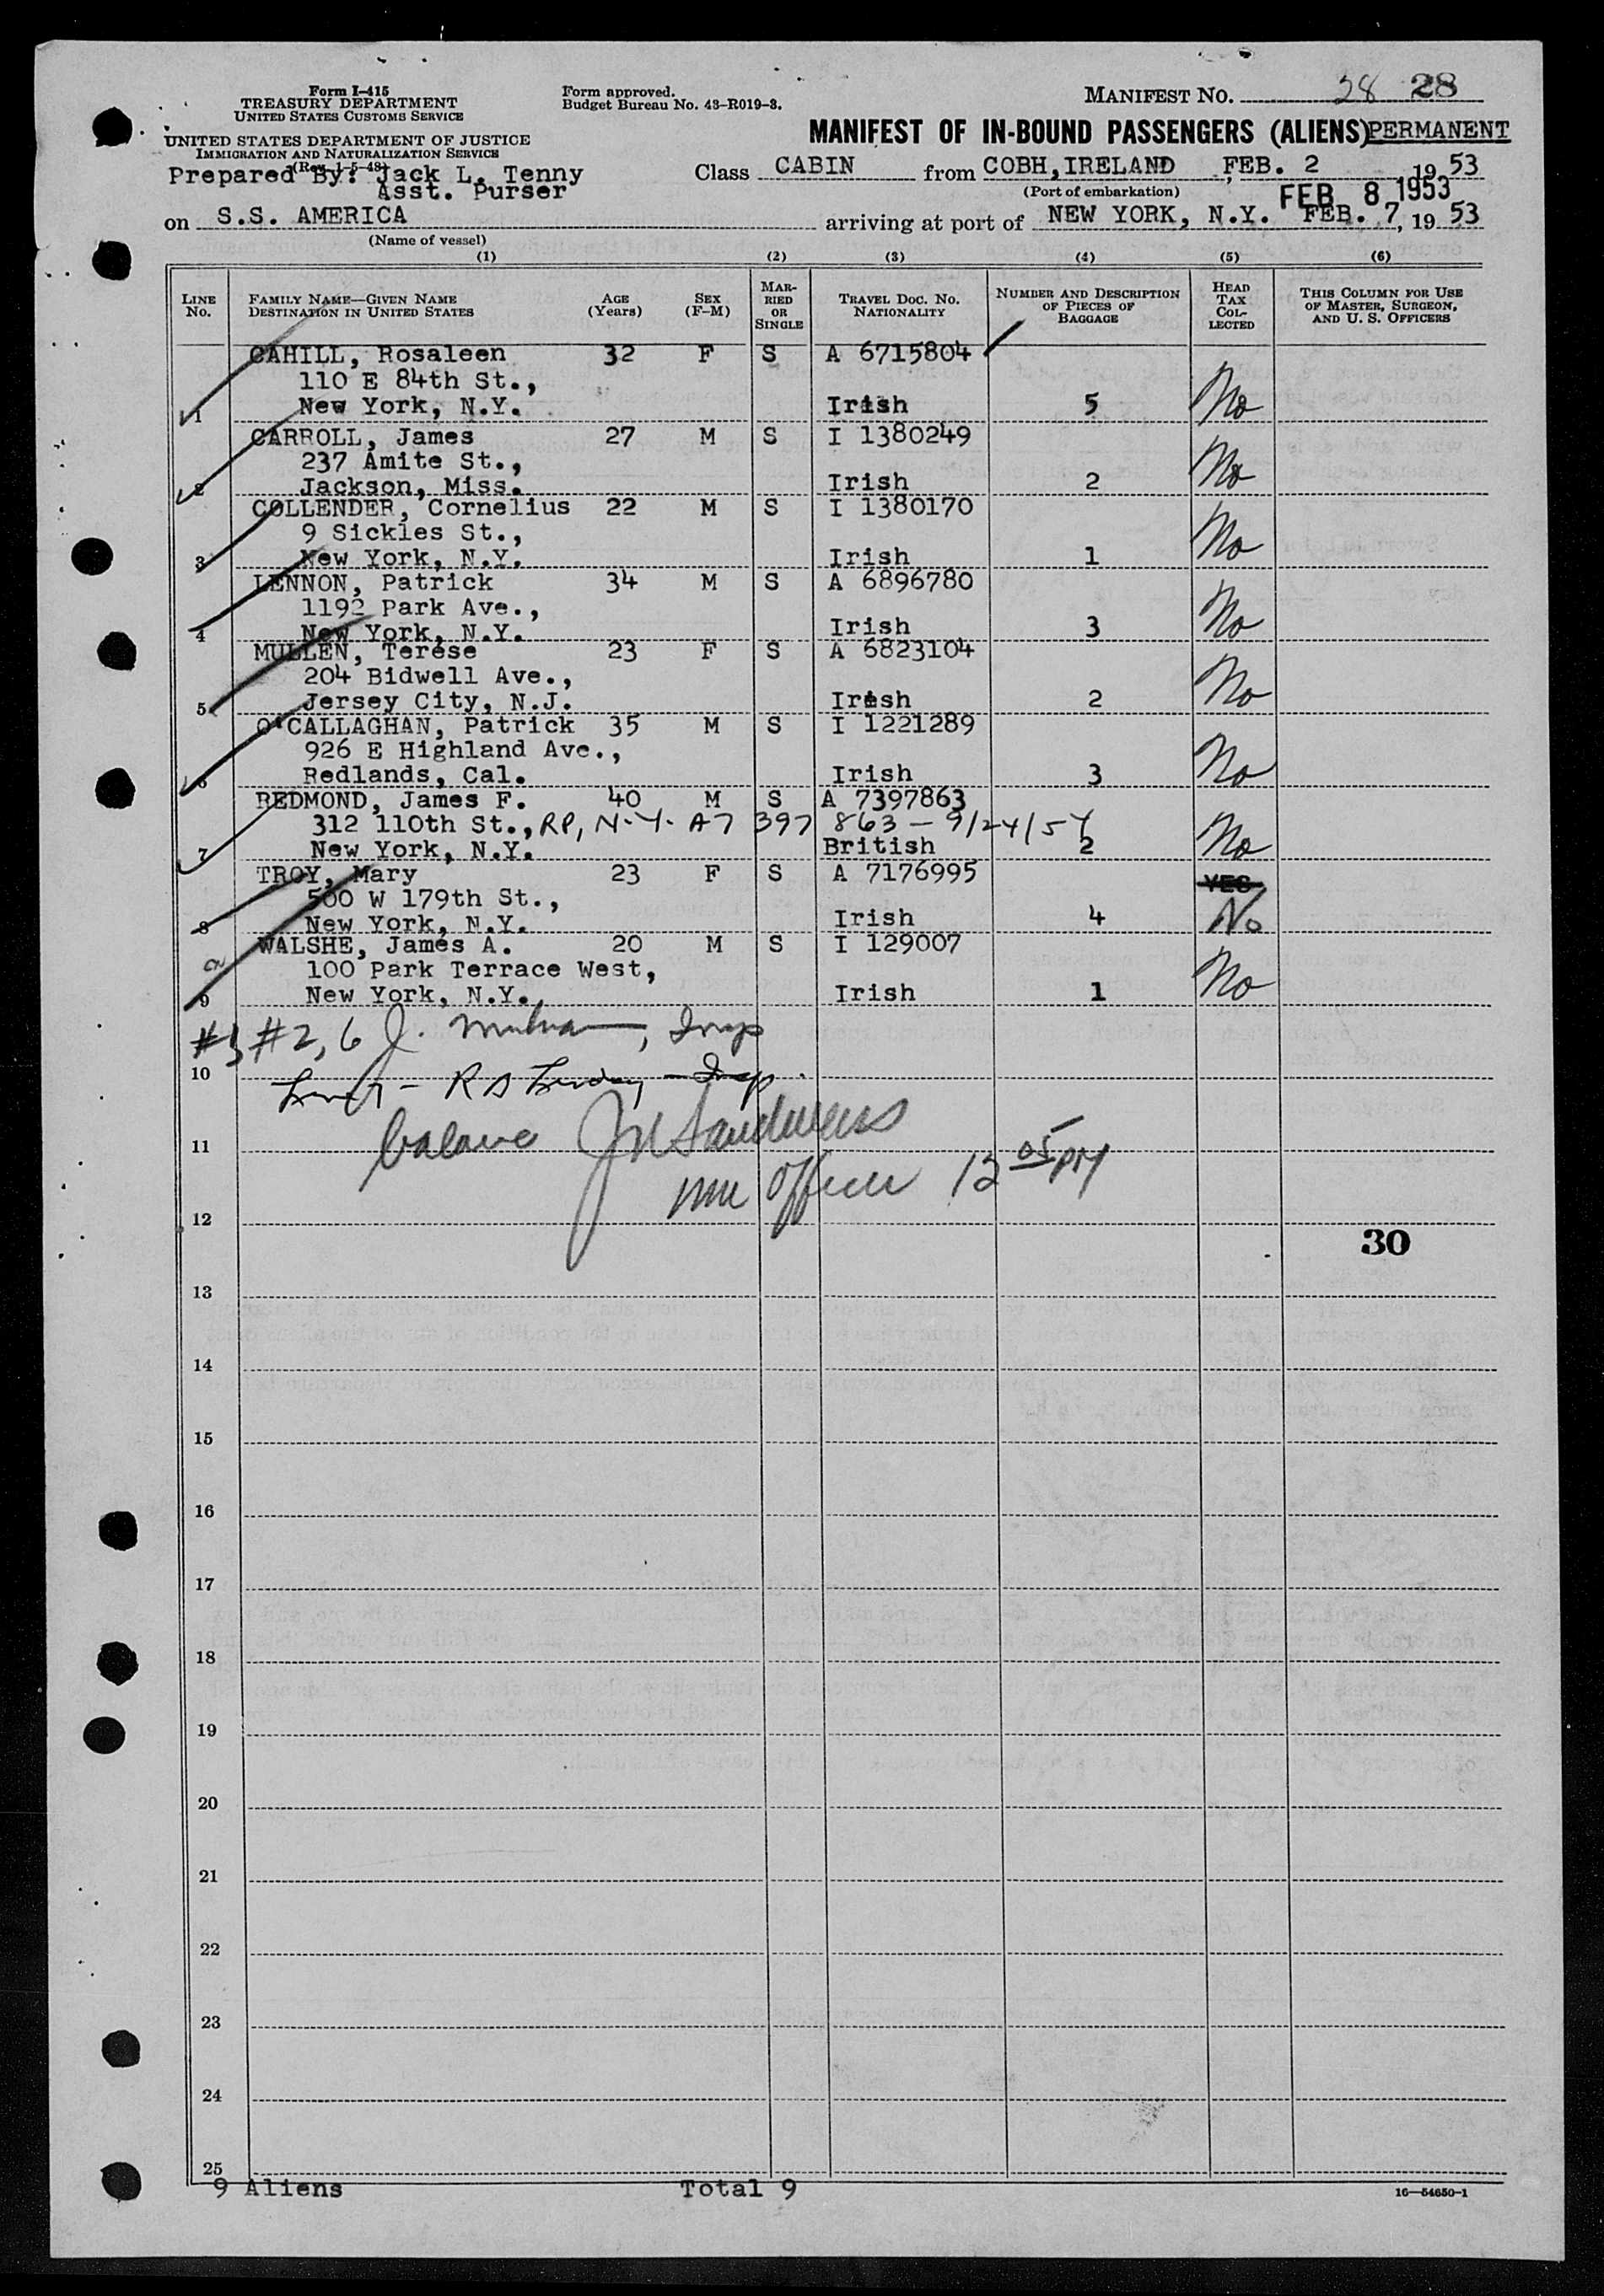 Form I-415
TREASURY DEPARTMENT
UNITED STATES CUSTOMS SERVICE
UNITED STATES DEPARTMENT OF JUSTICE
IMMIGRATION AND NATURALIZATION SERVICE
(Rev. 1-5-48)
Form approved.
Budget Bureau No. 43-R019-3.
MANIFEST NO. 28 28
MANIFEST OF IN-BOUND PASSENGERS (ALIENS) PERMANENT
Prepared By: Jack L. Tenny
Asst. Purser
Class CABIN from COBH, IRELAND, FEB. 2, 1953
(Port of embarkation)
FEB 8 1953
on S.S. AMERICA arriving at port of NEW YORK, N.Y. FEB. 7, 1953
(Name of vessel)
(1) (2) (3) (4) (5) (6)
LINE No. FAMILY NAME—GIVEN NAME DESTINATION IN UNITED STATES AGE (Years) SEX (F-M) MARRIED OR SINGLE TRAVEL DOC. NO. NATIONALITY NUMBER AND DESCRIPTION OF PIECES OF BAGGAGE HEAD TAX COLLECTED THIS COLUMN FOR USE OF MASTER, SURGEON, AND U. S. OFFICERS
CAHILL, Rosaleen 32 F S A 6715804
110 E 84th St.,
1 New York, N.Y. Irish 5 No
CARROLL, James 27 M S I 1380249
237 Amite St.,
2 Jackson, Miss. Irish 2 No
COLLENDER, Cornelius 22 M S I 1380170
9 Sickles St.,
3 New York, N.Y. Irish 1 No
LENNON, Patrick 34 M S A 6896780
1192 Park Ave.,
4 New York, N.Y. Irish 3 No
MULLEN, Terese 23 F S A 6823104
204 Bidwell Ave.,
5 Jersey City, N.J. Irish 2 No
O'CALLAGHAN, Patrick 35 M S I 1221289
926 E Highland Ave.,
6 Redlands, Cal. Irish 3 No
REDMOND, James F. 40 M S A 7397863
312 110th St., RP, N.Y. A7 397 863 - 9/24/54
7 New York, N.Y. British 2 No
TROY, Mary 23 F S A 7176995 YES
500 W 179th St.,
8 New York, N.Y. Irish 4 No
WALSHE, James A. 20 M S I 129007
100 Park Terrace West,
9 New York, N.Y. Irish 1 No
#2, 6 J.
10
11 balance
Officer 12 05 PM
12
30
13
14
15
16
17
18
19
20
21
22
23
24
25
9 Aliens Total 9
16—54650-1